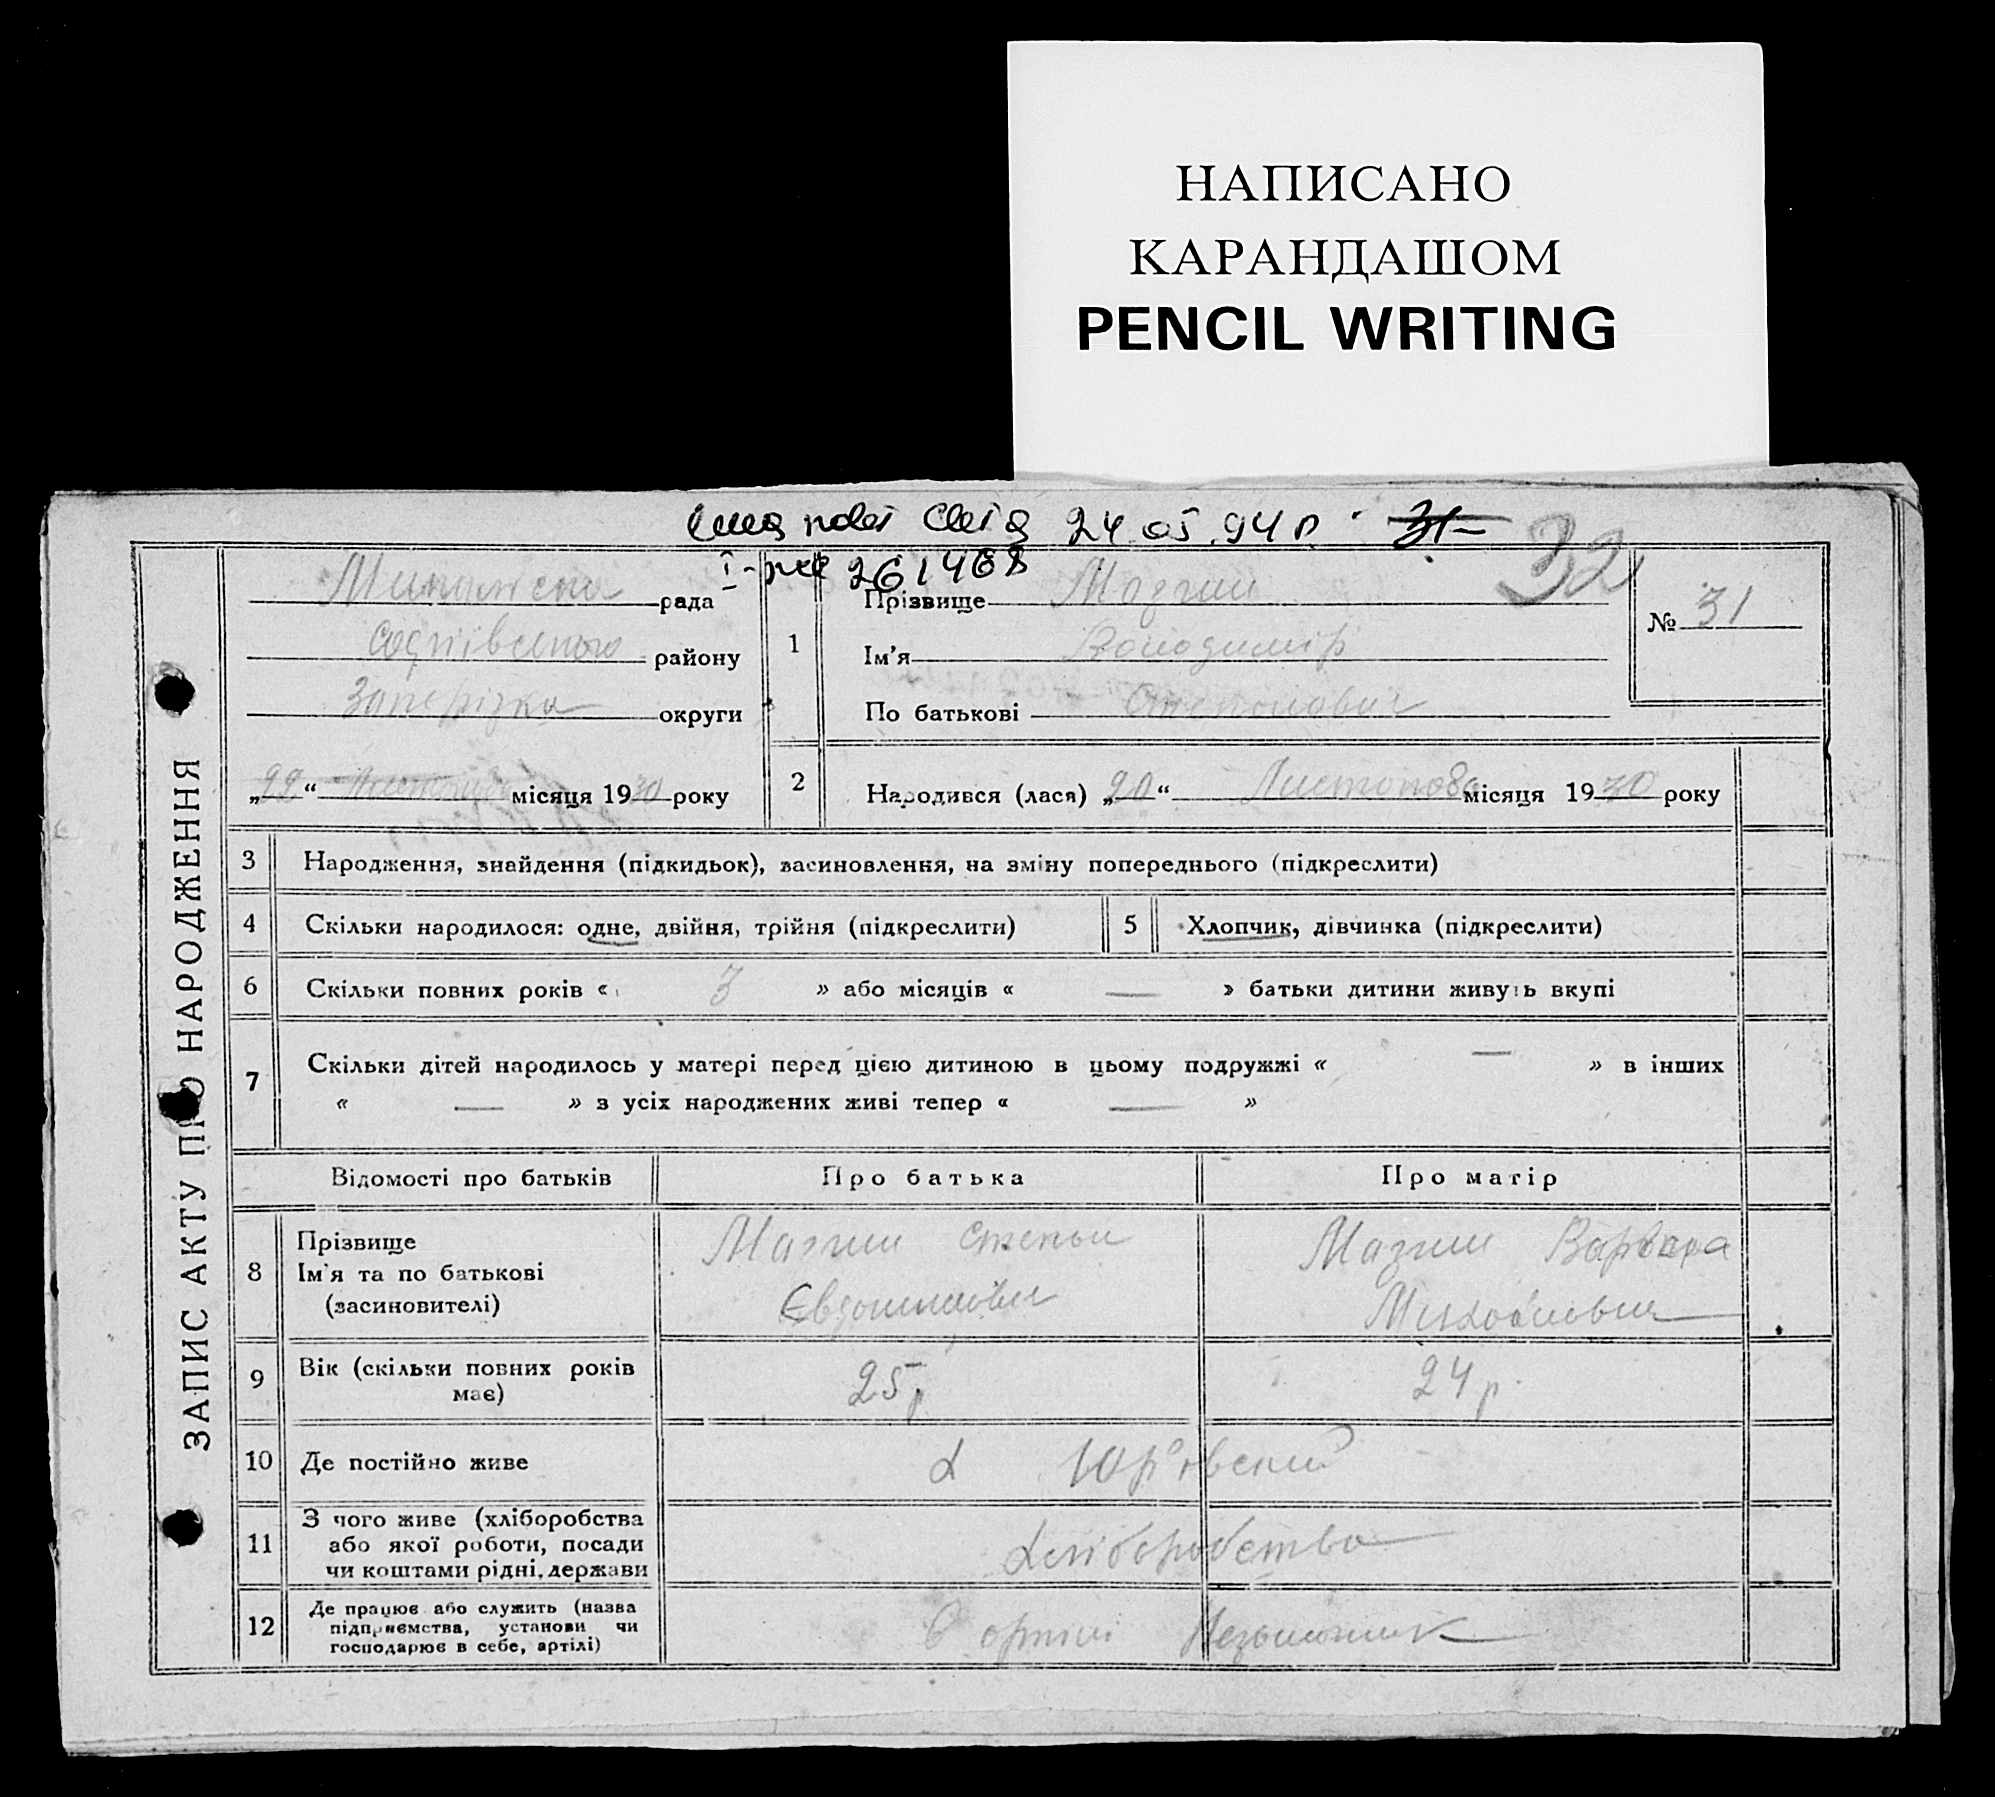 НАПИСАНО
КАРАНДАШОМ
PENCIL WRITING
24.05.94 р. 31 32
І- 261468
ЗАПИС АКТУ ПРО НАРОДЖЕННЯ
рада
району
округи
„22“ Листопада місяця 1930 року
1
Прізвище Мазгин
Ім'я Володимір
По батькові Степанович
№ 31
2 Народився (лася) „20“ Листопада місяця 1930 року
3 Народження, знайдення (підкидьок), засиновлення, на зміну попереднього (підкреслити)
4 Скільки народилося: одне, двійня, трійня (підкреслити)
5 Хлопчик, дівчинка (підкреслити)
6 Скільки повних років « 3 » або місяців « — » батьки дитини живуть вкупі
7 Скільки дітей народилось у матері перед цією дитиною в цьому подружжі « — » в інших
« — » з усіх народжених живі тепер « — »
Відомості про батьків Про батька Про матір
8 Прізвище
Ім'я та по батькові
(засиновителі)
Мазгин Степан
Мазгин Варвара
9 Вік (скільки повних років
має)
25 р
24 р.
10 Де постійно живе
11 З чого живе (хліборобства
або якої роботи, посади
чи коштами рідні, держави
Хліборобство
12 Де працює або служить (назва
підприємства, установи чи
господарює в себе, артілі)
В артілі Незаможник